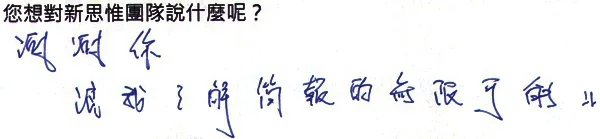 您想對新思惟團隊說什麼呢？
謝謝你
讓我了解簡報的無限可能!!